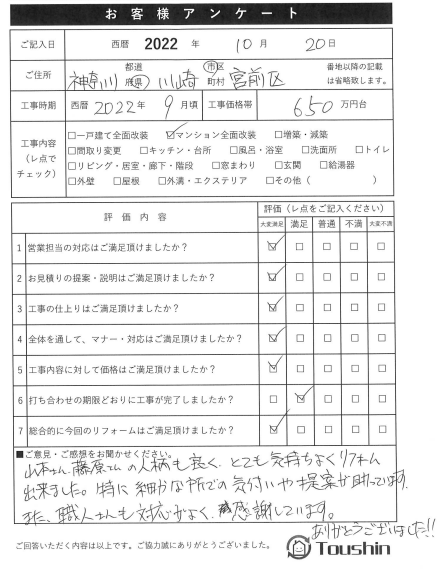 お客様アンケート
ご記入日 西暦 2022 年 10 月 20 日
ご住所 神奈川 都道府県 川崎 市区町村 宮前区 番地以降の記載は省略致します。
工事時期 西暦 2022 年 9 月頃 工事価格帯 650 万円台
工事内容(レ点でチェック)
□一戸建て全面改装 ☑マンション全面改装 □増築・減築
□間取り変更 □キッチン・台所 □風呂・浴室 □洗面所 □トイレ
□リビング・居室・廊下・階段 □窓まわり □玄関 □給湯器
□外壁 □屋根 □外溝・エクステリア □その他( )
評価内容 評価(レ点をご記入ください)
大変満足 満足 普通 不満 大変不満
1 営業担当の対応はご満足頂けましたか? ☑ □ □ □ □
2 お見積りの提案・説明はご満足頂けましたか? ☑ □ □ □ □
3 工事の仕上りはご満足頂けましたか? ☑ □ □ □ □
4 全体を通して、マナー・対応はご満足頂けましたか? ☑ □ □ □ □
5 工事内容に対して価格はご満足頂けましたか? ☑ □ □ □ □
6 打ち合わせの期限どおりに工事が完了しましたか? □ ☑ □ □ □
7 総合的に今回のリフォームはご満足頂けましたか? ☑ □ □ □ □
■ご意見・ご感想をお聞かせください。
山本さん、藤原さんの人柄も良く、とても気持ちよくリフォーム
出来ました。特に細かな所での気付いや提案が助っています。
また、職人さんも対応がよく、感謝しています。
ありがとうございました!!
ご回答いただく内容は以上です。ご協力誠にありがとうございました。
Toushin